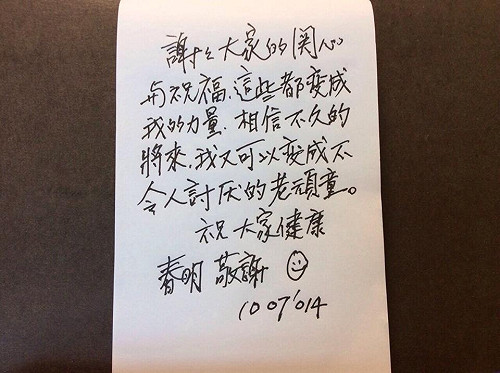 謝々大家的関心
与祝福.這些都变成
我的力量.相信不久的
將來.我又可以变成不
令人討厌的老頑童。
祝大家健康
春明 敬謝
10 07 '014